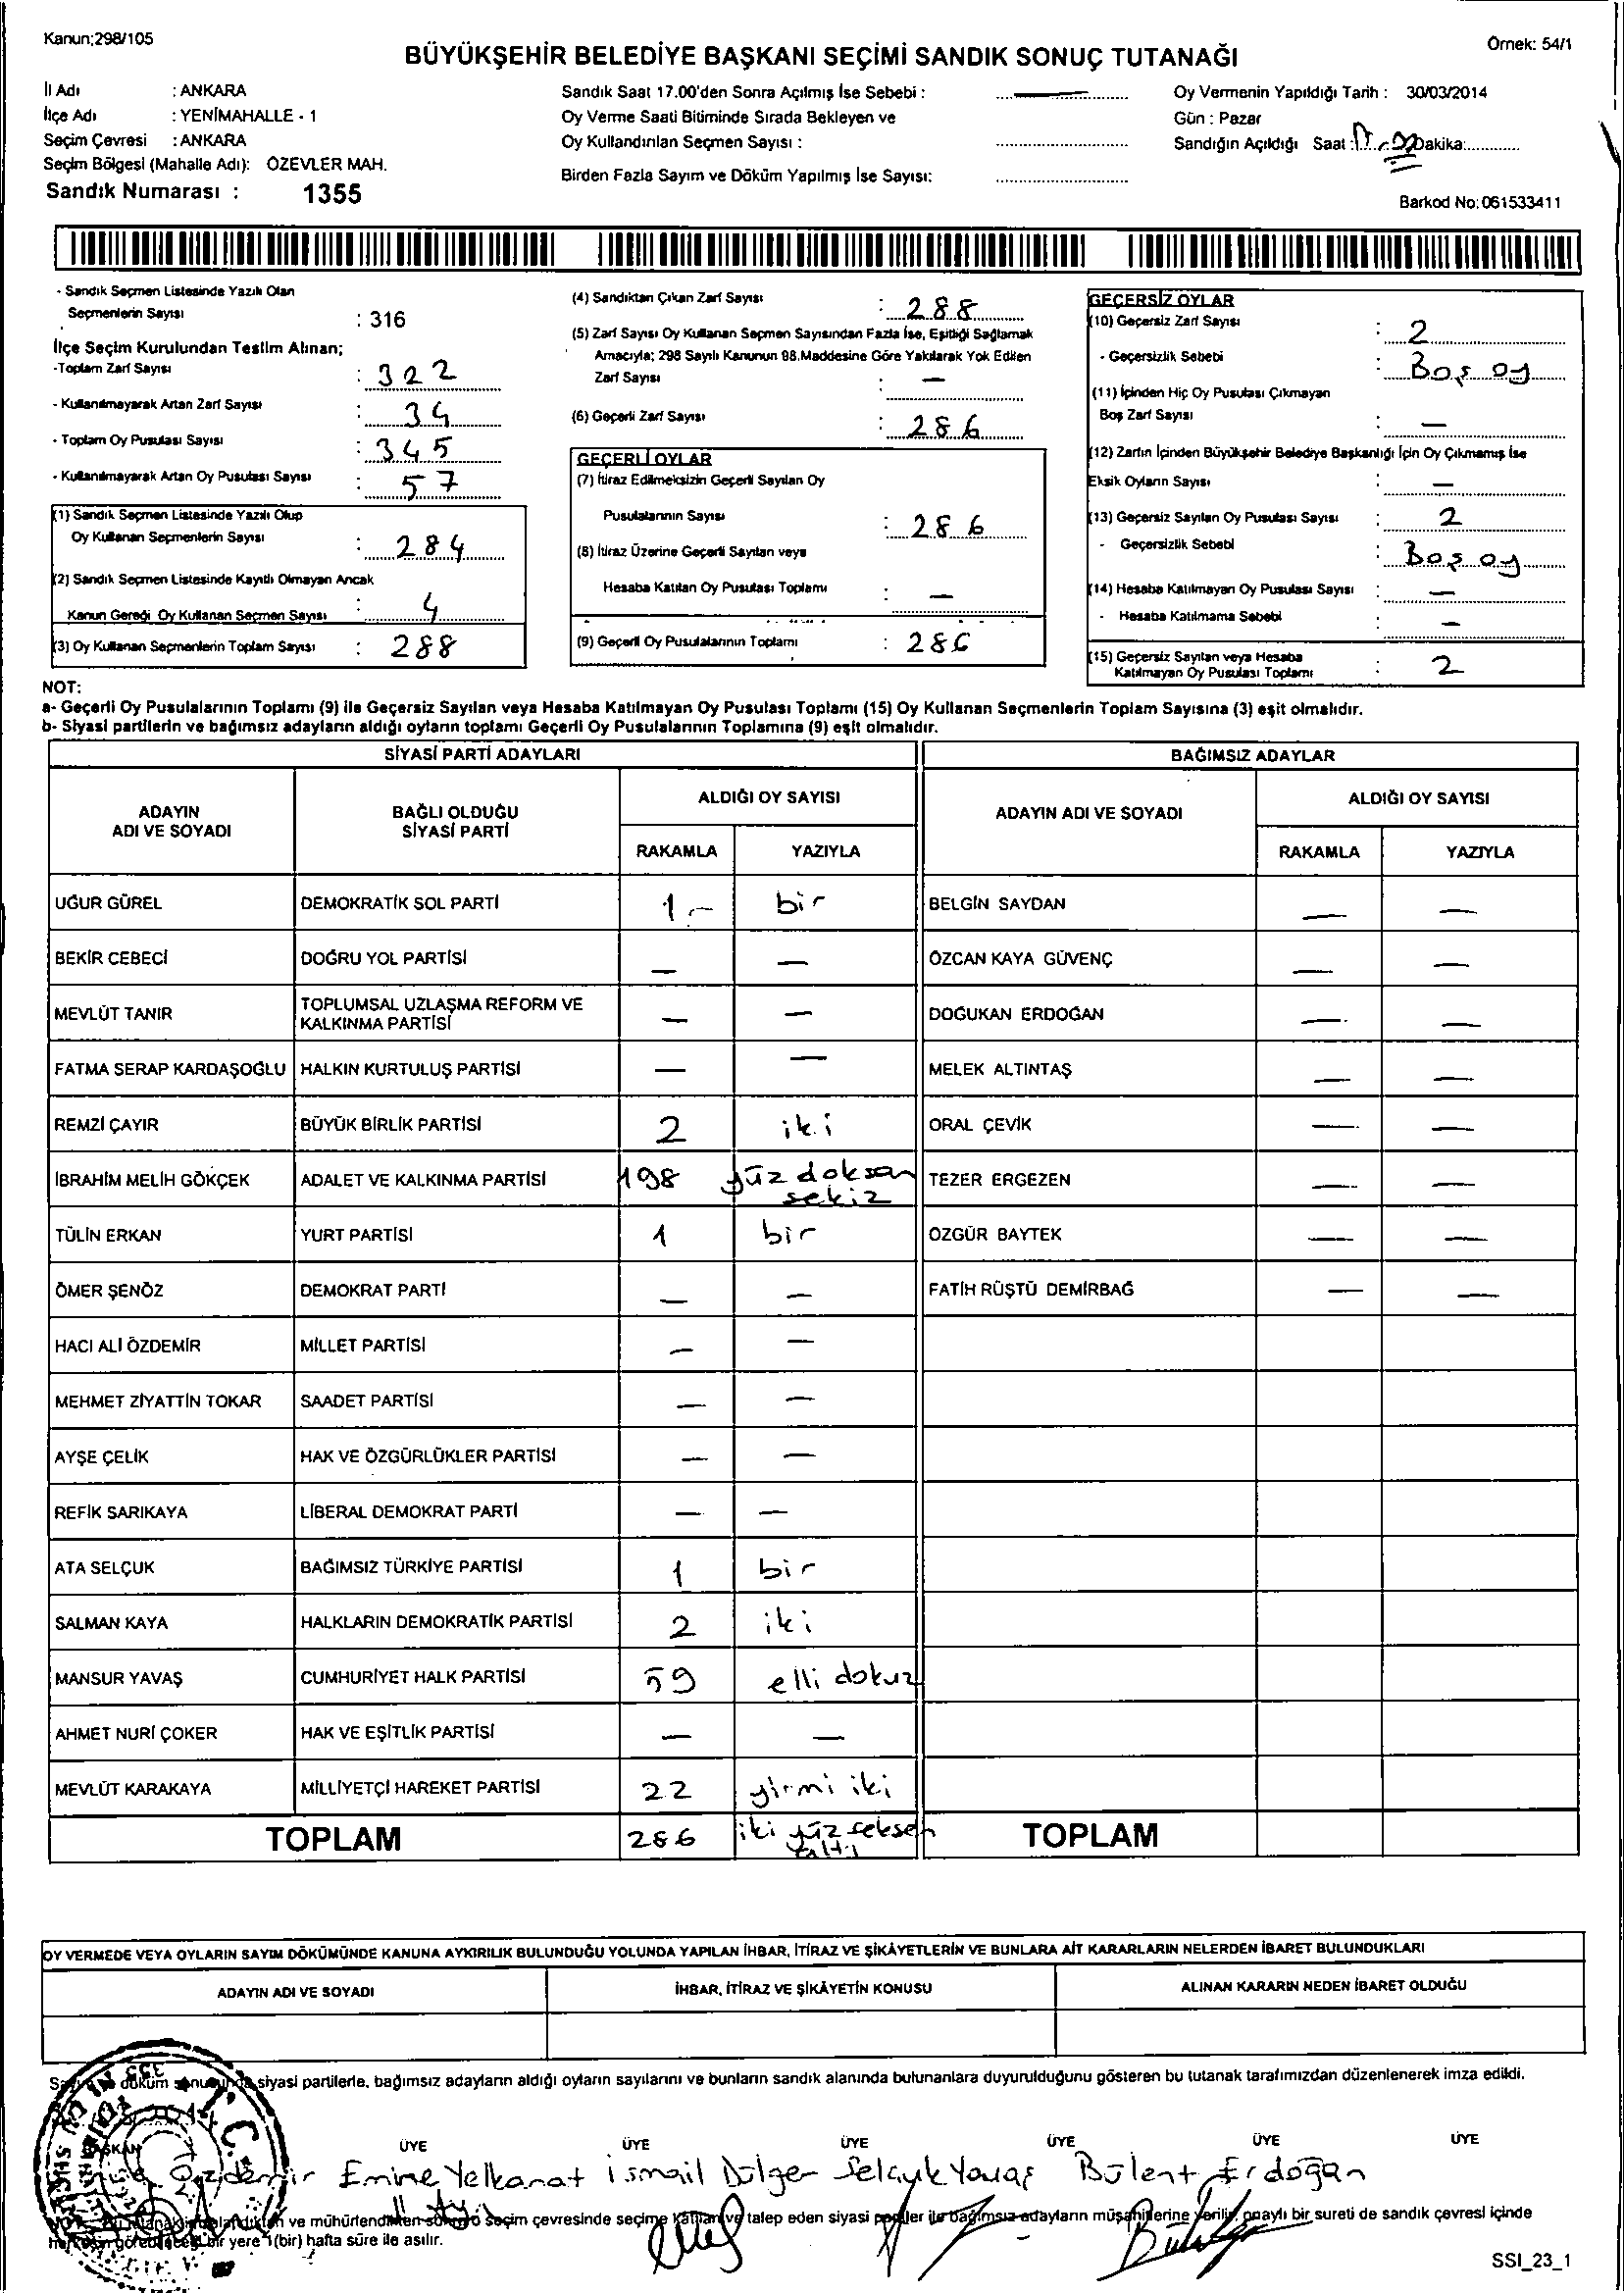 Kanun;298/105
Örnek: 54/1
BÜYÜKŞEHİR BELEDİYE BAŞKANI SEÇİMİ SANDIK SONUÇ TUTANAĞI
İl Adı : ANKARA
İlçe Adı : YENİMAHALLE - 1
Seçim Çevresi : ANKARA
Seçim Bölgesi (Mahalle Adı): ÖZEVLER MAH.
Sandık Numarası : 1355
Sandık Saat 17.00'den Sonra Açılmış İse Sebebi :
Oy Verme Saati Bitiminde Sırada Bekleyen ve
Oy Kullandırılan Seçmen Sayısı :
Birden Fazla Sayım ve Döküm Yapılmış İse Sayısı:
Oy Vermenin Yapıldığı Tarih : 30/03/2014
Gün : Pazar
Sandığın Açıldığı Saat : Dakika:
Barkod No:061533411
- Sandık Seçmen Listesinde Yazılı Olan
Seçmenlerin Sayısı : 316
İlçe Seçim Kurulundan Teslim Alınan;
-Toplam Zarf Sayısı : 322
- Kullanılmayarak Artan Zarf Sayısı : 34
- Toplam Oy Pusulası Sayısı : 345
- Kullanılmayarak Artan Oy Pusulası Sayısı : 57
(1) Sandık Seçmen Listesinde Yazılı Olup
Oy Kullanan Seçmenlerin Sayısı : 284
(2) Sandık Seçmen Listesinde Kayıtlı Olmayan Ancak
Kanun Gereği Oy Kullanan Seçmen Sayısı : 4
(3) Oy Kullanan Seçmenlerin Toplam Sayısı : 288
(4) Sandıktan Çıkan Zarf Sayısı : 288
(5) Zarf Sayısı Oy Kullanan Seçmen Sayısından Fazla İse, Eşitliği Sağlamak
Amacıyla; 298 Sayılı Kanunun 98.Maddesine Göre Yakılarak Yok Edilen
Zarf Sayısı : —
(6) Geçerli Zarf Sayısı : 286
GEÇERLİ OYLAR
(7) İtiraz Edilmeksizin Geçerli Sayılan Oy
Pusulalarının Sayısı : 286
(8) İtiraz Üzerine Geçerli Sayılan veya
Hesaba Katılan Oy Pusulası Toplamı : —
(9) Geçerli Oy Pusulalarının Toplamı : 286
GEÇERSİZ OYLAR
(10) Geçersiz Zarf Sayısı : 2
- Geçersizlik Sebebi : Boş oy
(11) İçinden Hiç Oy Pusulası Çıkmayan
Boş Zarf Sayısı : —
(12) Zarfın İçinden Büyükşehir Belediye Başkanlığı İçin Oy Çıkmamış İse
Eksik Oyların Sayısı : —
(13) Geçersiz Sayılan Oy Pusulası Sayısı : 2
- Geçersizlik Sebebi : Boş oy
(14) Hesaba Katılmayan Oy Pusulası Sayısı : —
- Hesaba Katılmama Sebebi : —
(15) Geçersiz Sayılan veya Hesaba
Katılmayan Oy Pusulası Toplamı : 2
NOT:
a- Geçerli Oy Pusulalarının Toplamı (9) ile Geçersiz Sayılan veya Hesaba Katılmayan Oy Pusulası Toplamı (15) Oy Kullanan Seçmenlerin Toplam Sayısına (3) eşit olmalıdır.
b- Siyasi partilerin ve bağımsız adayların aldığı oyların toplamı Geçerli Oy Pusulalarının Toplamına (9) eşit olmalıdır.
SİYASİ PARTİ ADAYLARI
BAĞIMSIZ ADAYLAR
ADAYIN ADI VE SOYADI
BAĞLI OLDUĞU SİYASİ PARTİ
ALDIĞI OY SAYISI
RAKAMLA YAZIYLA
ADAYIN ADI VE SOYADI
ALDIĞI OY SAYISI
RAKAMLA YAZIYLA
UĞUR GÜREL DEMOKRATİK SOL PARTİ 1- bir BELGİN SAYDAN — —
BEKİR CEBECİ DOĞRU YOL PARTİSİ — — ÖZCAN KAYA GÜVENÇ — —
MEVLÜT TANIR TOPLUMSAL UZLAŞMA REFORM VE KALKINMA PARTİSİ — — DOĞUKAN ERDOĞAN — —
FATMA SERAP KARDAŞOĞLU HALKIN KURTULUŞ PARTİSİ — — MELEK ALTINTAŞ — —
REMZİ ÇAYIR BÜYÜK BİRLİK PARTİSİ 2 iki ORAL ÇEVİK — —
İBRAHİM MELİH GÖKÇEK ADALET VE KALKINMA PARTİSİ 198 yüz doksan sekiz TEZER ERGEZEN — —
TÜLİN ERKAN YURT PARTİSİ 1 bir ÖZGÜR BAYTEK — —
ÖMER ŞENÖZ DEMOKRAT PARTİ — — FATİH RÜŞTÜ DEMİRBAĞ — —
HACI ALİ ÖZDEMİR MİLLET PARTİSİ — —
MEHMET ZİYATTİN TOKAR SAADET PARTİSİ — —
AYŞE ÇELİK HAK VE ÖZGÜRLÜKLER PARTİSİ — —
REFİK SARIKAYA LİBERAL DEMOKRAT PARTİ — —
ATA SELÇUK BAĞIMSIZ TÜRKİYE PARTİSİ 1 bir
SALMAN KAYA HALKLARIN DEMOKRATİK PARTİSİ 2 iki
MANSUR YAVAŞ CUMHURİYET HALK PARTİSİ 59 elli dokuz
AHMET NURİ ÇOKER HAK VE EŞİTLİK PARTİSİ — —
MEVLÜT KARAKAYA MİLLİYETÇİ HAREKET PARTİSİ 22 yirmi iki
TOPLAM 286 iki yüz seksen altı TOPLAM
OY VERMEDE VEYA OYLARIN SAYIM DÖKÜMÜNDE KANUNA AYKIRILIK BULUNDUĞU YOLUNDA YAPILAN İHBAR, İTİRAZ VE ŞİKÂYETLERİN VE BUNLARA AİT KARARLARIN NELERDEN İBARET BULUNDUKLARI
ADAYIN ADI VE SOYADI İHBAR, İTİRAZ VE ŞİKÂYETİN KONUSU ALINAN KARARIN NEDEN İBARET OLDUĞU
döküm sonucunda siyasi partilerle, bağımsız adayların aldığı oyların sayılarını ve bunların sandık alanında bulunanlara duyurulduğunu gösteren bu tutanak tarafımızdan düzenlenerek imza edildi.
T.C.
BAŞKAN ÜYE ÜYE ÜYE ÜYE ÜYE ÜYE
Özdemir Emine Yelkanat ismail Dülger Selçuk Yavaş Bülent Erdoğan
ve mühürlendikten sonra seçim çevresinde seçime katılan ve talep eden siyasi partiler ile bağımsız adayların müşahitlerine verilir, onaylı bir sureti de sandık çevresi içinde
bir yere 1(bir) hafta süre ile asılır.
SSI_23_1